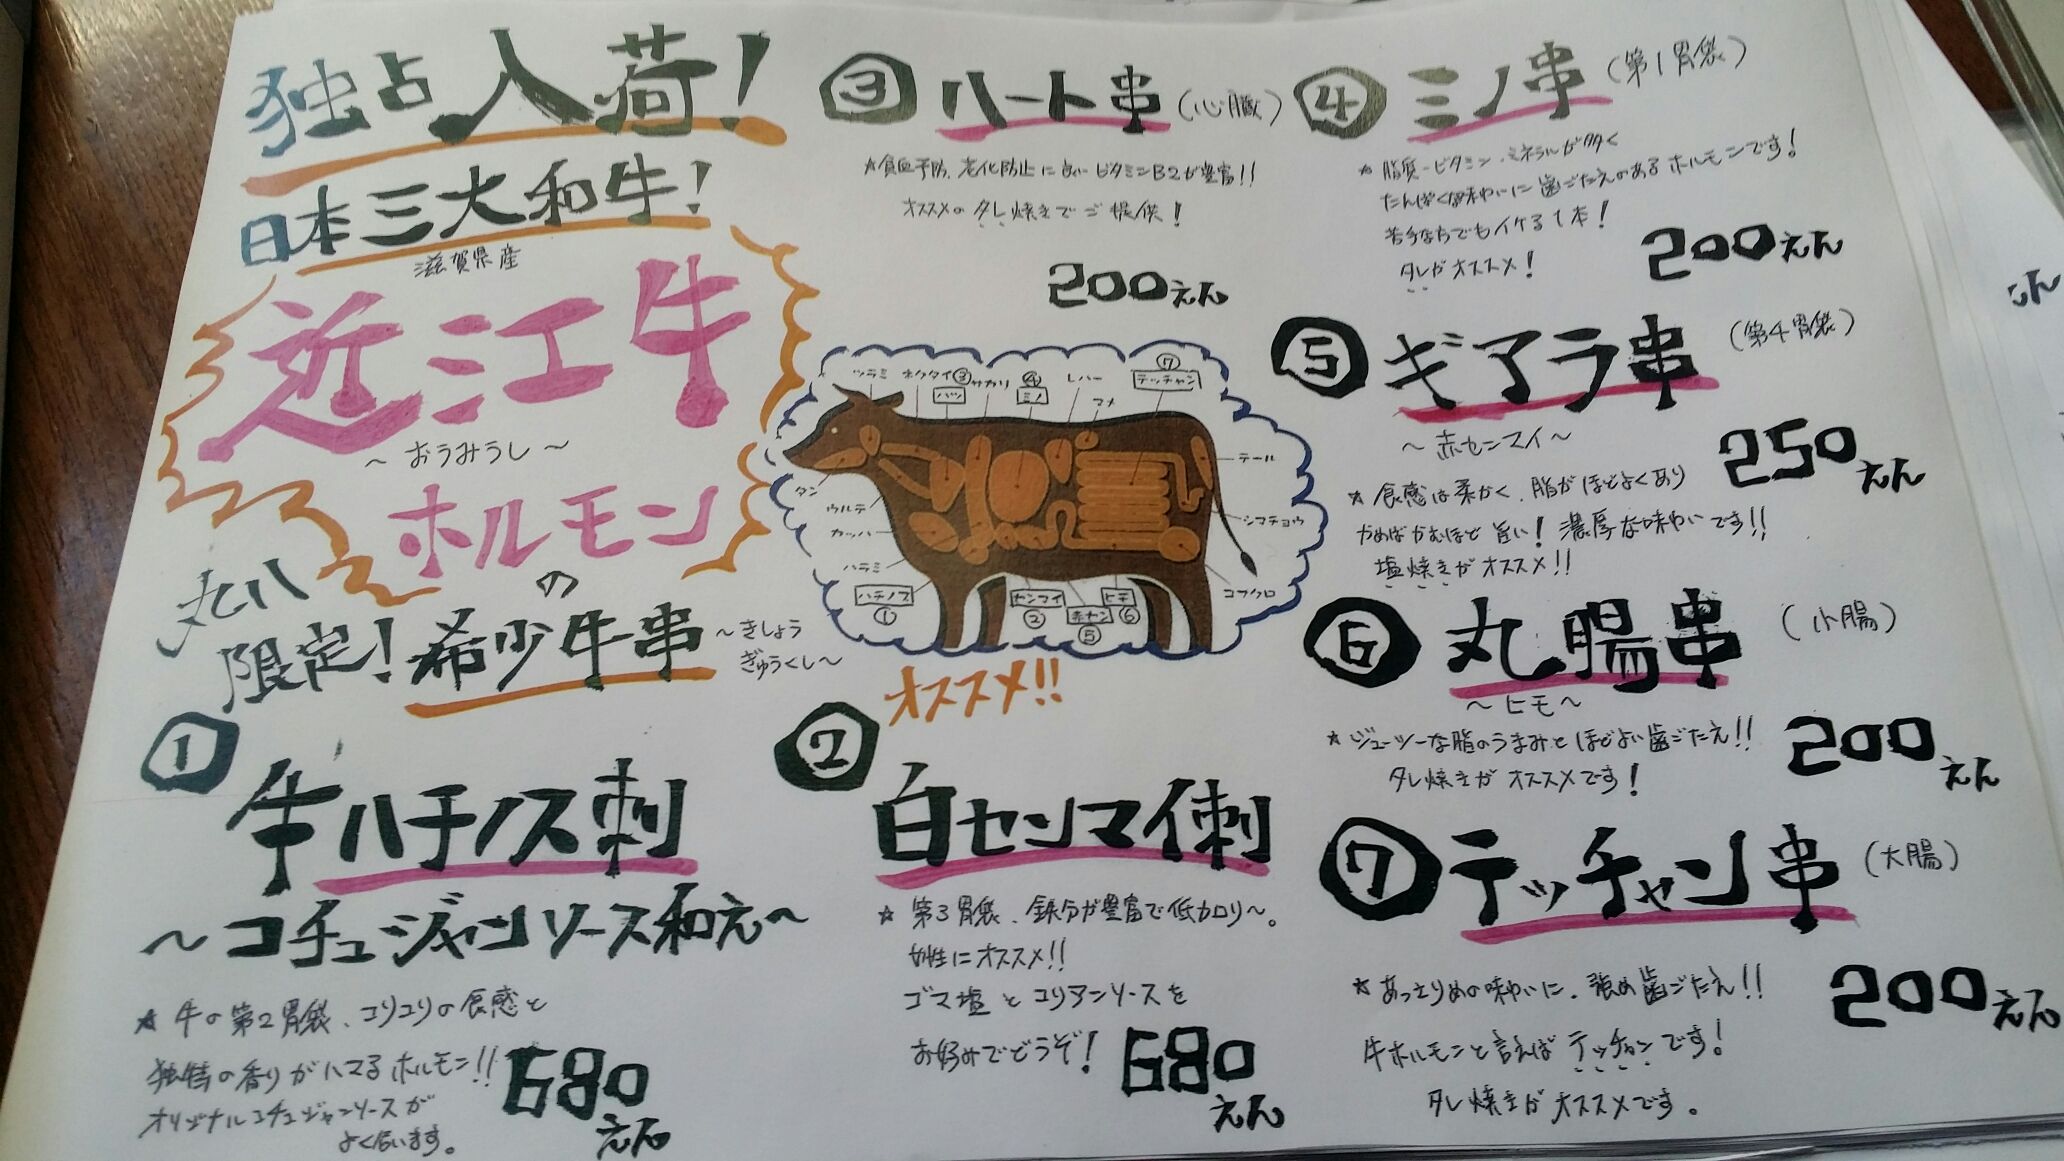 独占入荷!
日本三大和牛!
滋賀県産
近江牛
～おうみうし～
ホルモン
の
丸八
限定!希少牛串
～きしょう
ぎゅうくし～
①
牛ハチノス刺
～コチュジャンソース和え～
☆牛の第2胃袋、コリコリの食感と
独特の香りがハマるホルモン!!
オリジナルコチュジャンソースが
よく合います。
680えん
オススメ!!
②
白センマイ刺
☆第3胃袋、鉄分が豊富で低カロリ～。
女性にオススメ!!
ゴマ塩とコリアンソースを
お好みでどうぞ!
680えん
③ハート串(心臓)
☆貧血予防、老化防止に良いビタミンB2が豊富!!
オススメのタレ焼きでご提供!
200えん
ツラミ
ネクタイ
③
ハツ
サガリ
④
ミノ
レバー
マメ
⑦
テッチャン
テール
シマチョウ
コブクロ
タン
ウルテ
カッパ
ハラミ
ハチノス
①
センマイ
②
赤セン
⑤
ヒモ
⑥
④ミノ串(第1胃袋)
☆脂質-ビタミン、ミネラルが多く
たんぱくな味わいに歯ごたえのあるホルモンです!
苦手な方でもイケる1本!
タレがオススメ!
200えん
⑤ギアラ串(第4胃袋)
～赤センマイ～
☆食感は柔かく、脂がほどよくあり
かめばかむほど旨い!濃厚な味わいです!!
塩焼きがオススメ!!
250えん
⑥丸腸串(小腸)
～ヒモ～
☆ジューシーな脂のうまみとほどよい歯ごたえ!!
タレ焼きがオススメです!
200えん
⑦テッチャン串(大腸)
☆あっさりめの味わいに、強め歯ごたえ!!
牛ホルモンと言えばテッチャンです!
タレ焼きがオススメです。
200えん